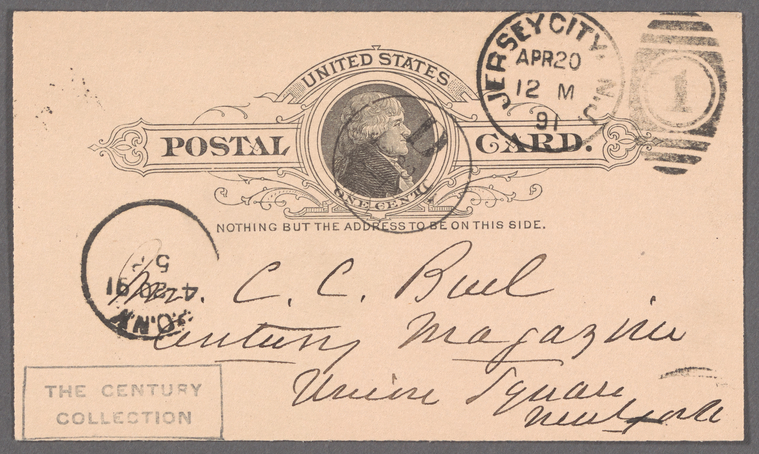 UNITED STATES
POSTAL CARD.
ONE CENT
NOTHING BUT THE ADDRESS TO BE ON THIS SIDE.
JERSEY CITY, N.J.
APR 20
12 M
91
1
D
4-20 91
5 P
C. C. Buel
Century Magazine
Union Square
New York
THE CENTURY
COLLECTION